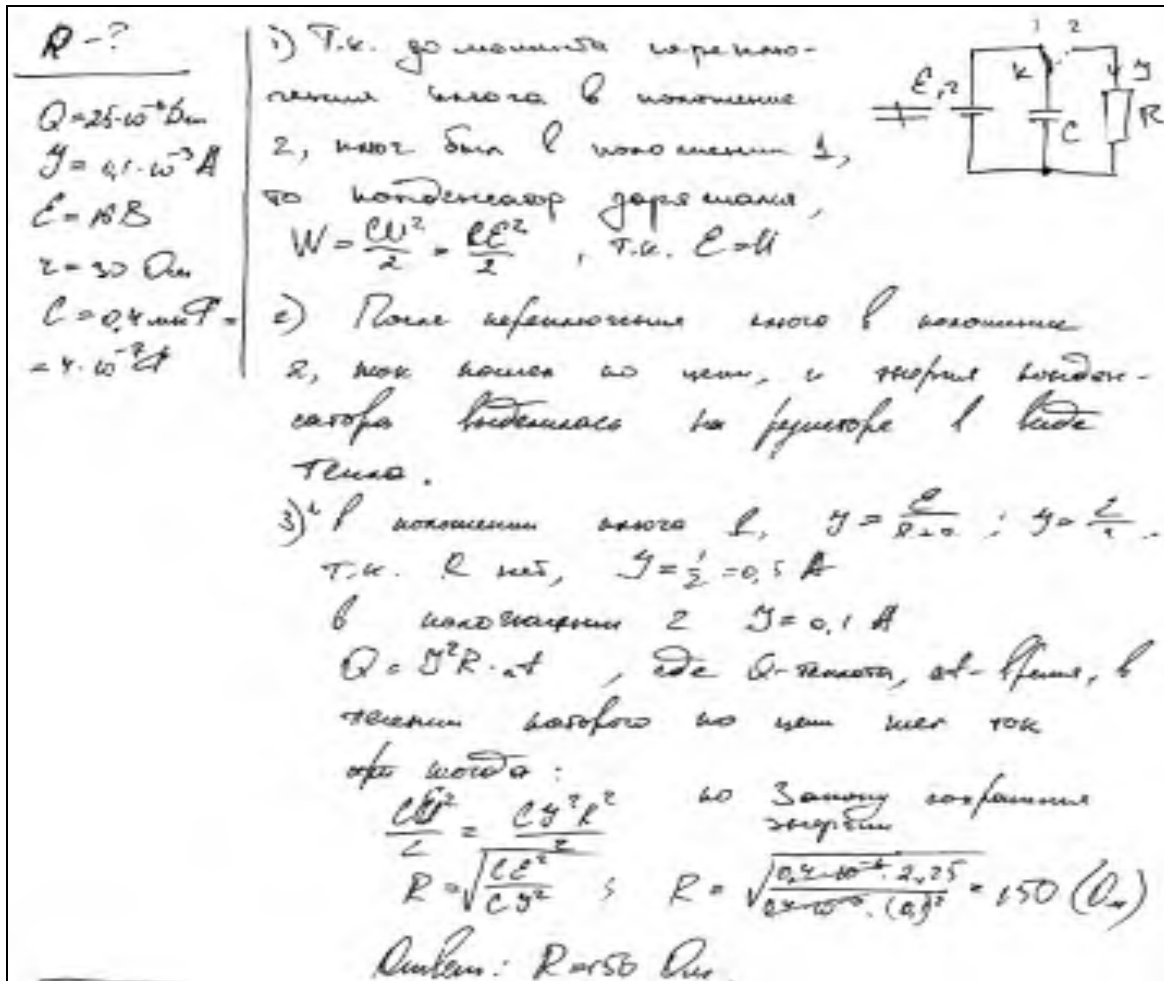 R - ?
Q = 25·10⁻⁶ Дж
J = 0,1·10⁻³ А
r = 30 Ом
C = 0,4 мкФ =
= 4·10⁻⁷ Ф
1) Т.к. до момента переклю-
чения ключа в положение
2, ключ был в положении 1,
то конденсатор заряжался,
W = CU²/2 = CE²/2 , т.к. E = U
1 2
K
E, r
C
J
R
2) После переключения ключа в положение
2, ток пошел по цепи, и энергия конден-
сатора выделилась на резисторе в виде
тепла.
3) в положении ключа 1, J = ; J =
т.к. R нет, J = 1/2 = 0,5 А
в положении 2 J = 0,1 А
Q = J²R·Δt , где Q - теплота, Δt - время, в
течении которого по цепи шел ток
тогда:
CU²/2 = CJ²R²/2 по Закону сохранения
энергии
R = √(CE²/CJ²) ; R = = 150 (Ом)
Ответ: R = 150 Ом.